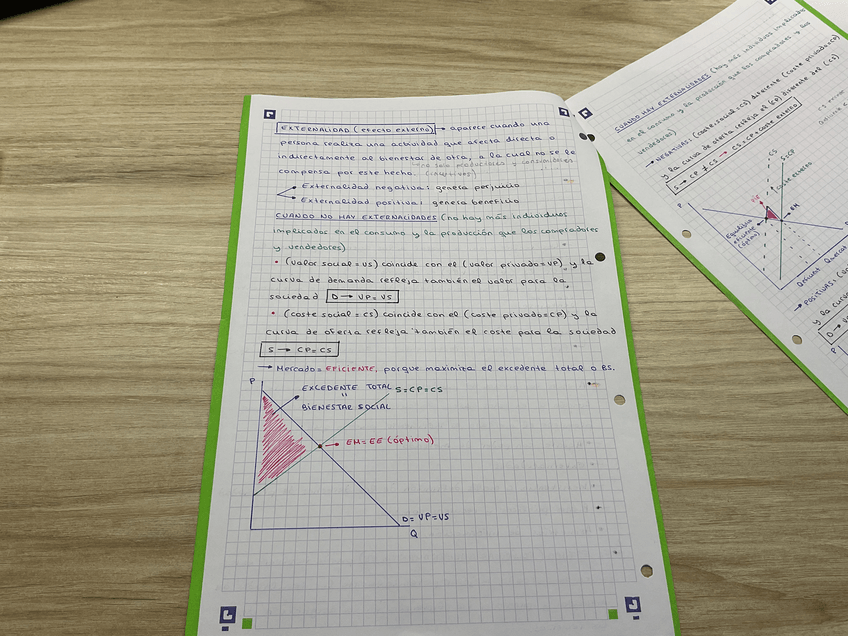 EXTERNALIDAD (efecto externo) → aparece cuando una
persona realiza una actividad que afecta directa o
indirectamente al bienestar de otra, a la cual no se le
compensa por este hecho.
Externalidad negativa: genera perjuicio
Externalidad positiva: genera beneficio
CUANDO NO HAY EXTERNALIDADES (no hay más individuos
implicados en el consumo y la producción que los compradores
y vendedores)
• (valor social=VS) coincide con el (valor privado=VP) y la
curva de demanda refleja también el valor para la
sociedad D → VP=VS
• (coste social=CS) coincide con el (coste privado=CP) y la
curva de oferta refleja también el coste para la sociedad
S → CP=CS
→ Mercado=EFICIENTE, porque maximiza el excedente total o BS.
P
EXCEDENTE TOTAL
=
BIENESTAR SOCIAL
S=CP=CS
→ EM=EE (óptimo)
D=VP=VS
Q
CUANDO HAY EXTERNALIDADES (hay más individuos implicados
en el consumo y la producción que los compradores y los
vendedores)
→ NEGATIVAS: (coste social=CS) diferente (coste privado=CP)
y la curva de oferta refleja el (CP) diferente del (CS)
S → CP ≠ CS → CS=CP+coste externo
CS
S=CP
coste externo
P
EM
Equilibrio
eficiente
(óptimo)
→ POSITIVAS:
y la curva
D →
P